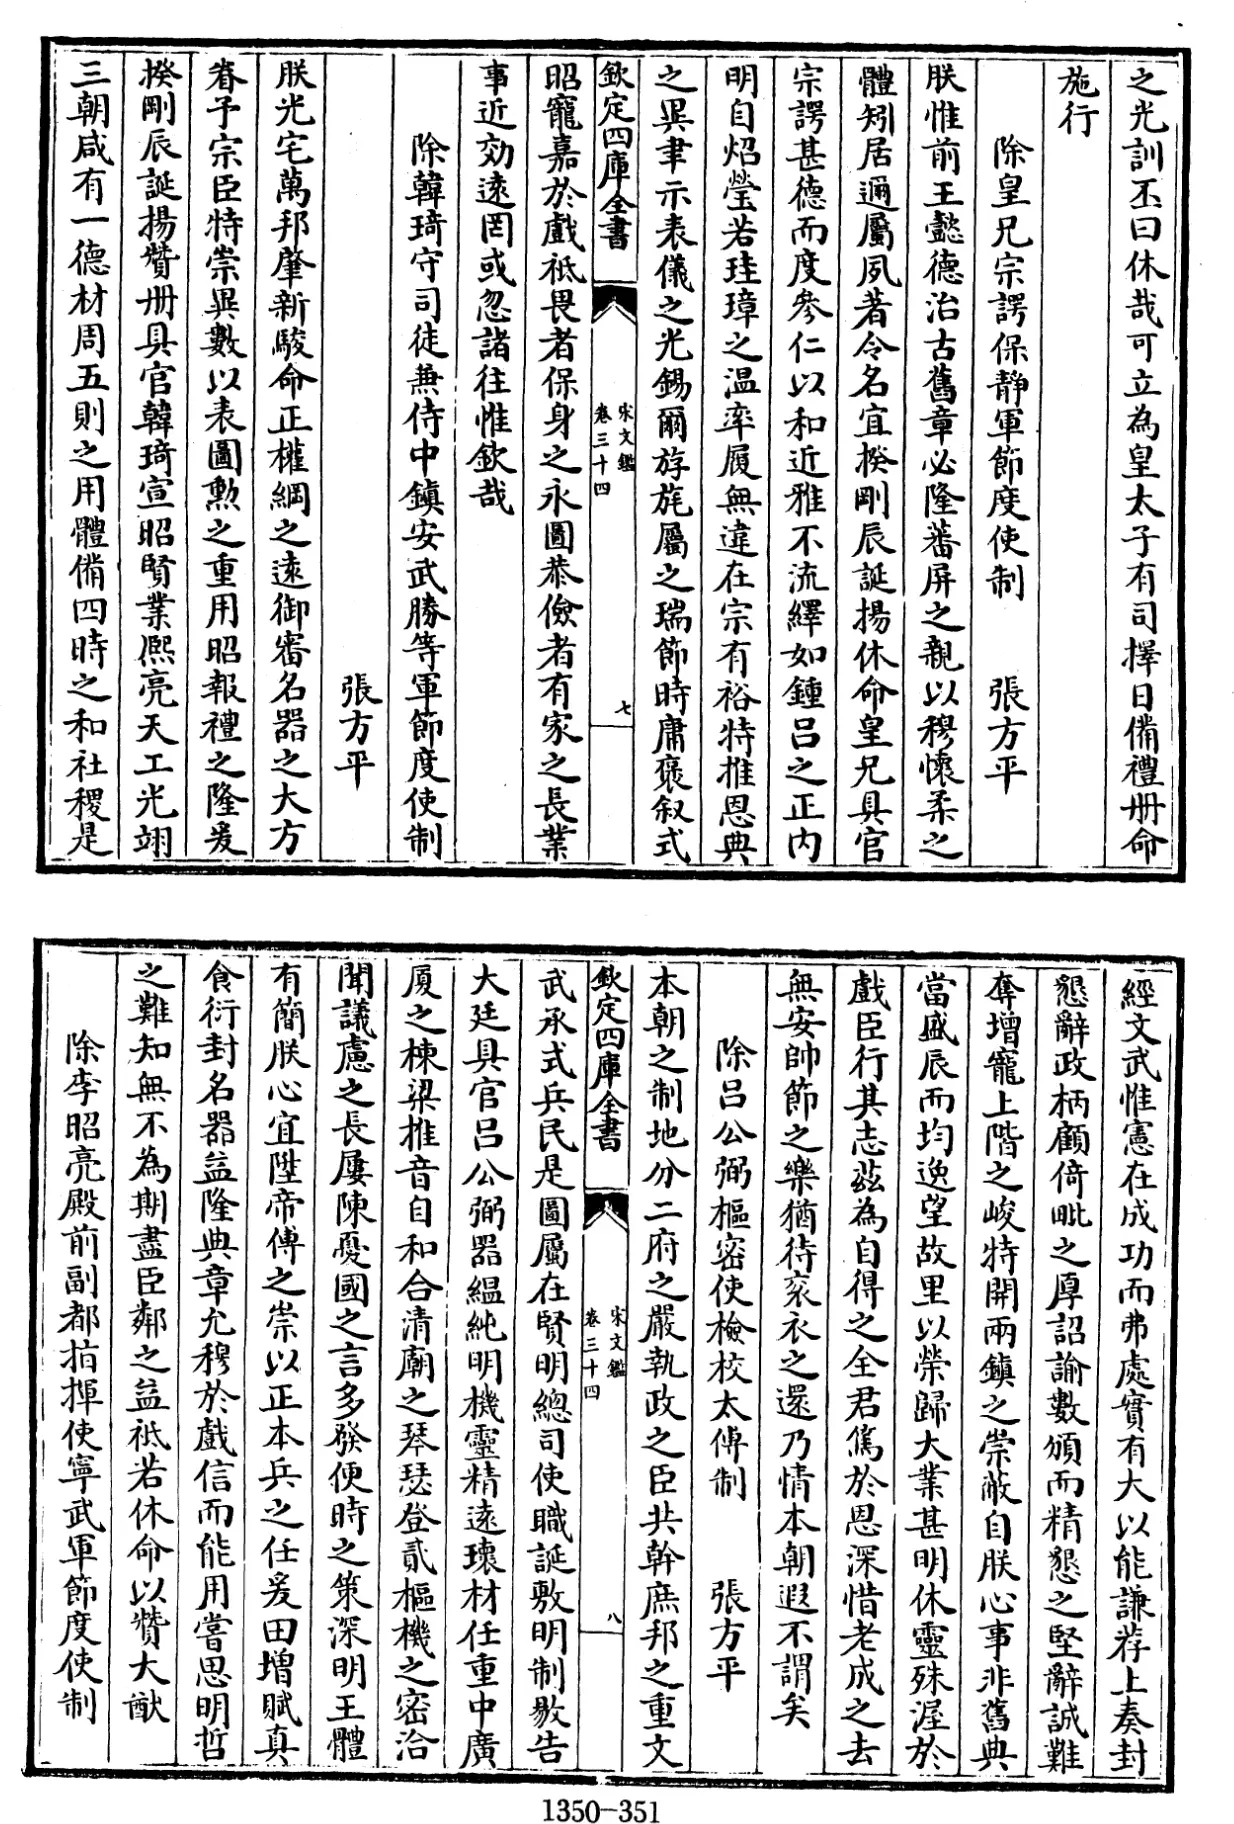 之光訓丕曰休哉可立為皇太子有司擇日備禮冊命
施行
除皇兄宗諤保靜軍節度使制 張方平
朕惟前王懿德治古舊章必隆蕃屏之親以穆懷柔之
體矧居邇屬夙著令名宜揆剛辰誕揚休命皇兄具官
宗諤甚德而度參仁以和近雅不流繹如鍾呂之正内
明自炤瑩若珪璋之温率履無違在宗有裕特推恩典
之異聿示表儀之光錫爾斿旄屬之瑞節時庸褒叙式
欽定四庫全書
宋文鑑
卷三十四
七
昭寵嘉於戲祗畏者保身之永圖恭儉者有家之長業
事近効遠罔或忽諸往惟欽哉
除韓琦守司徒兼侍中鎮安武勝等軍節度使制
張方平
朕光宅萬邦肇新駿命正權綱之遠御審名器之大方
眷予宗臣特崇異數以表圖勲之重用昭報禮之隆爰
揆剛辰誕揚賛冊具官韓琦宣昭賢業熙亮天工光翊
三朝咸有一德材周五則之用體備四時之和社稷是
經文武惟憲在成功而弗處實有大以能謙荐上奏封
懇辭政柄顧倚毗之厚詔諭數頒而精懇之堅辭誠難
奪增寵上階之峻特開兩鎮之崇蔽自朕心事非舊典
當盛辰而均逸望故里以榮歸大業甚明休靈殊渥於
戲臣行其志兹為自得之全君篤於恩深惜老成之去
無安帥節之樂猶待衮衣之還乃情本朝遐不謂矣
除呂公弼樞密使檢校太傅制 張方平
本朝之制地分二府之嚴執政之臣共幹庶邦之重文
欽定四庫全書
宋文鑑
卷三十四
八
武承式兵民是圖屬在賢明總司使職誕敷明制敭告
大廷具官呂公弼器緼純明機靈精遠瓌材任重中廣
厦之棟梁推音自和合清廟之琴瑟登貳樞機之密洽
聞議慮之長屢陳憂國之言多發便時之策深明王體
有簡朕心宜陞帝傅之崇以正本兵之任爰田增賦真
食衍封名器益隆典章允穆於戲信而能用嘗思明哲
之難知無不為期盡臣鄰之益祗若休命以賛大猷
除李昭亮殿前副都指揮使寧武軍節度使制
1350-351